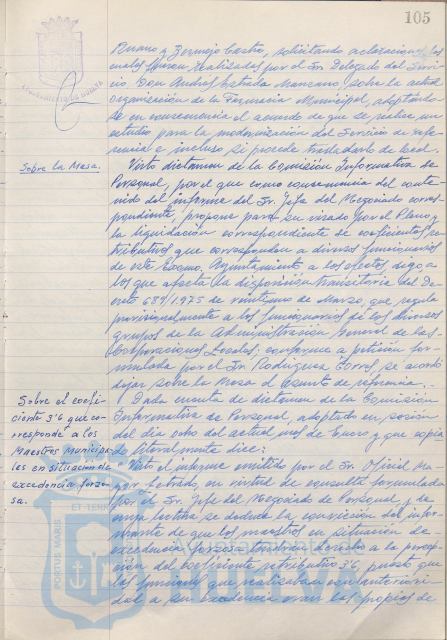 105
Ruano y Bermejo Castro, solicitando aclaraciones, las
cuales fueron realizadas por el Sr. Delegado del Servi-
cio Don Andrés Estrada Manzano, sobre la actual
organización de la Farmacia Municipal, adoptándo-
se en consecuencia el acuerdo de que se realice un
estudio para la modernización del Servicio de refe-
rencia e incluso si procede trasladarlo de local.
Sobre la Mesa.
Visto dictamen de la Comisión Informativa de
Personal, por el que como consecuencia del conte-
nido del informe del Sr. Jefe del Negociado corres-
pondiente, propone para su visado por el Pleno,
la liquidación correspondiente de coeficientes re-
tributivos que correspondan a diversos funcionarios
de este Excmo. Ayuntamiento a los efectos, digo a
los que afecta la disposición transitoria del De-
creto 689/1975 de veintiuno de Marzo, que regula
provisionalmente a los funcionarios de los diversos
grupos de la Administración General de las
Corporaciones Locales, conforme a petición for-
mulada por el Sr. Rodríguez Torres, se acordó
dejar sobre la Mesa el asunto de referencia.
Sobre el coefi-
ciente 3'6 que co-
rresponde a los
Maestros Municipa-
les en situación de
excedencia forzo-
sa.
Dada cuenta de dictamen de la Comisión
Informativa de Personal, adoptado en sesión
del día ocho del actual mes de Enero y que copia-
do literalmente dice:
Visto el informe emitido por el Sr. Oficial Ma-
yor Letrado, en virtud de consulta formulada
por el Sr. Jefe del Negociado de Personal, y de
cuya lectura se deduce la convicción del infor-
mante de que los maestros en situación de
excedencia forzosa tendrían derecho a la percep-
ción del coeficiente retributivo 3'6, puesto que
las funciones que realizaban con anteriori-
dad a su excedencia eran las propias de
PORTUS MARIS
ET TERRAE